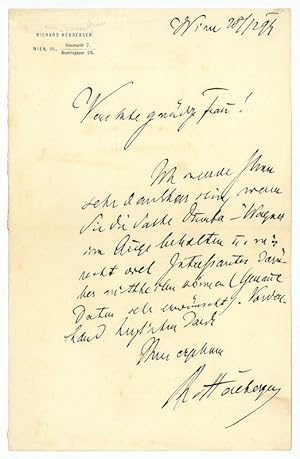 RICHARD HEUBERGER
WIEN, III., Heumarkt 7.
Beatrixgasse 26.
Wien 28/12 94
Verehrte gnädige Frau!
Ich würde Ihnen
sehr dankbar sein, wenn
Sie die Sache - Wagner
im Auge behalten u. mir
recht viel Interessantes darü-
ber mittheilen können (genaue
Daten sehr erwünscht). Vorder-
hand herzlichen Dank
Ihres ergebenen
Rich Heuberger